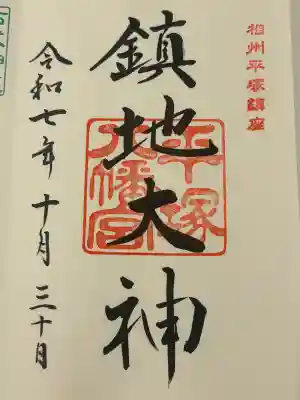 相州平塚鎮座
鎮地大神
平塚
八幡宮
令和七年十月三十日